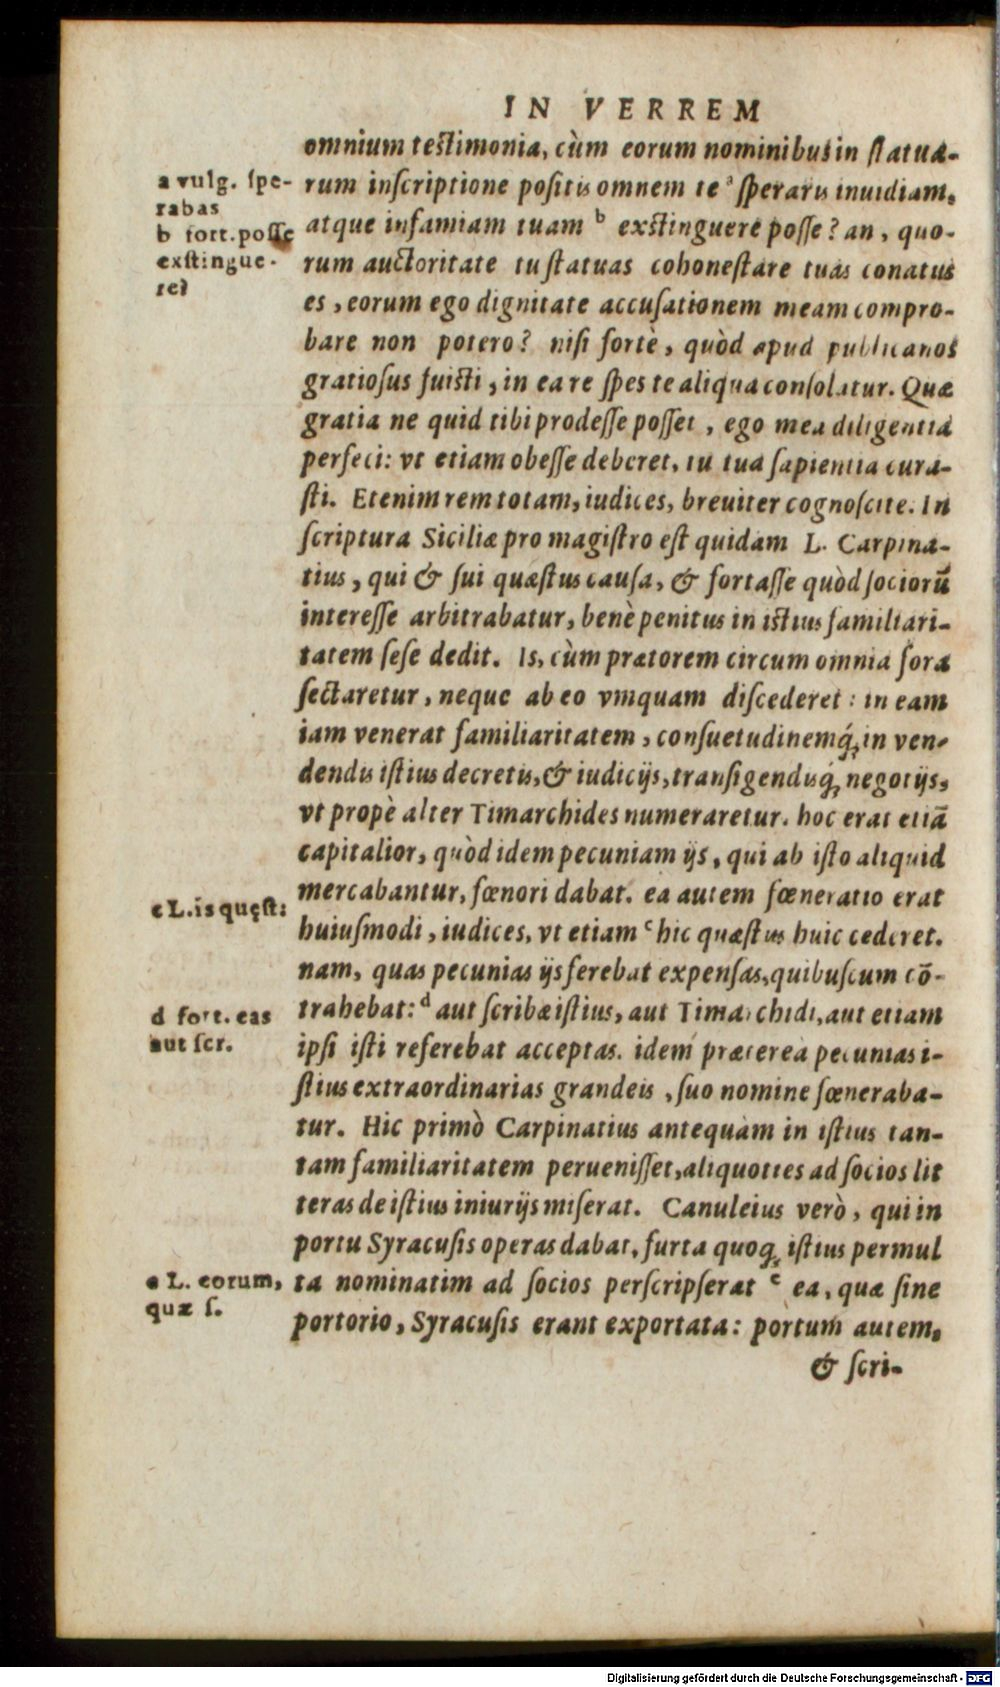 IN VERREM
omnium testimonia, cùm eorum nominibus in statua-
rum inscriptione positis omnem te ᵃ speraris inuidiam,
atque infamiam tuam ᵇ exstinguere posse? an, quo-
rum auctoritate tu statuas cohonestare tuas conatus
es, eorum ego dignitate accusationem meam compro-
bare non potero? nisi fortè, quòd apud publicanos
gratiosus fuisti, in ea re spes te aliqua consolatur. Quæ
gratia ne quid tibi prodesse posset, ego mea diligentia
perfeci: vt etiam obesse deberet, tu tua sapientia cura-
sti. Etenim rem totam, iudices, breuiter cognoscite. In
scriptura Siciliæ pro magistro est quidam L. Carpina-
tius, qui & sui quæstus causa, & fortasse quòd sociorũ
interesse arbitrabatur, benè penitus in istius familiari-
tatem sese dedit. Is, cùm prætorem circum omnia fora
sectaretur, neque ab eo vmquam discederet: in eam
iam venerat familiaritatem, consuetudinemq́; in ven-
dendis istius decretis, & iudicijs, transigendisq́; negotijs,
vt propè alter Timarchides numeraretur. hoc erat etiã
capitalior, quòd idem pecuniam ijs, qui ab isto aliquid
mercabantur, fœnori dabat. ea autem fœneratio erat
huiusmodi, iudices, vt etiam ᶜ hic quæstus huic cederet.
nam, quas pecunias ijs ferebat expensas, quibuscum cõ-
trahebat: ᵈ aut scribæ istius, aut Timarchidi, aut etiam
ipsi isti referebat acceptas. idem præterea pecunias i-
stius extraordinarias grandeis, suo nomine fœneraba-
tur. Hic primò Carpinatius antequam in istius tan-
tam familiaritatem peruenisset, aliquoties ad socios lit
teras de istius iniurijs miserat. Canuleius verò, qui in
portu Syracusis operas dabat, furta quoq; istius permul
ta nominatim ad socios perscripserat ᵉ ea, quæ sine
portorio, Syracusis erant exportata: portum autem,
& scri-
a vulg. spe-
rabas
b fort. posse
exstingue-
re?
c L. is quęst:
d fort. eas
aut scr.
e L. eorum,
quæ s.
Digitalisierung gefördert durch die Deutsche Forschungsgemeinschaft - DFG